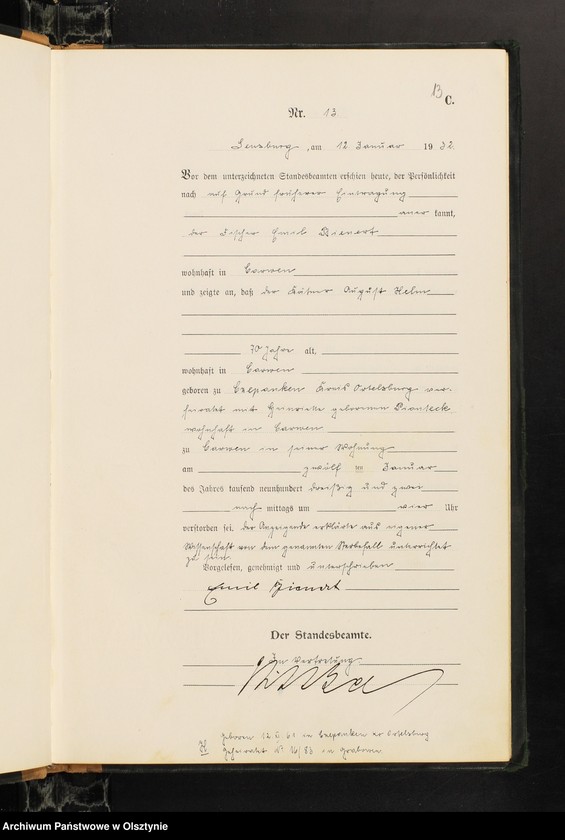 13
C.
Nr. 13
Sensburg, am 12 Januar 1932
Vor dem unterzeichneten Standesbeamten erschien heute, der Persönlichkeit
nach auf Grund früherer Eintragung
aner kannt,
der Fischer Emil
wohnhaft in Carwen
und zeigte an, daß der August Helm
70 Jahre alt,
wohnhaft in Carwen
geboren zu Kreis Ortelsburg ver-
heiratet mit Henriette geborenen
wohnhaft in Carwen
zu Carwen in seiner Wohnung
am zwölf ten Januar
des Jahres tausend neunhundert dreißig und zwei
nach mittags um vier Uhr
verstorben sei. der Anzeigende erklärte aus eigener
Wissenschaft von dem genannten Sterbefall unterrichtet
zu sein.
Vorgelesen, genehmigt und unterschrieben
Emil
Der Standesbeamte.
In Vertretung
geboren in Ortelsburg
geheiratet N° 16/83 in
Archiwum Państwowe w Olsztynie